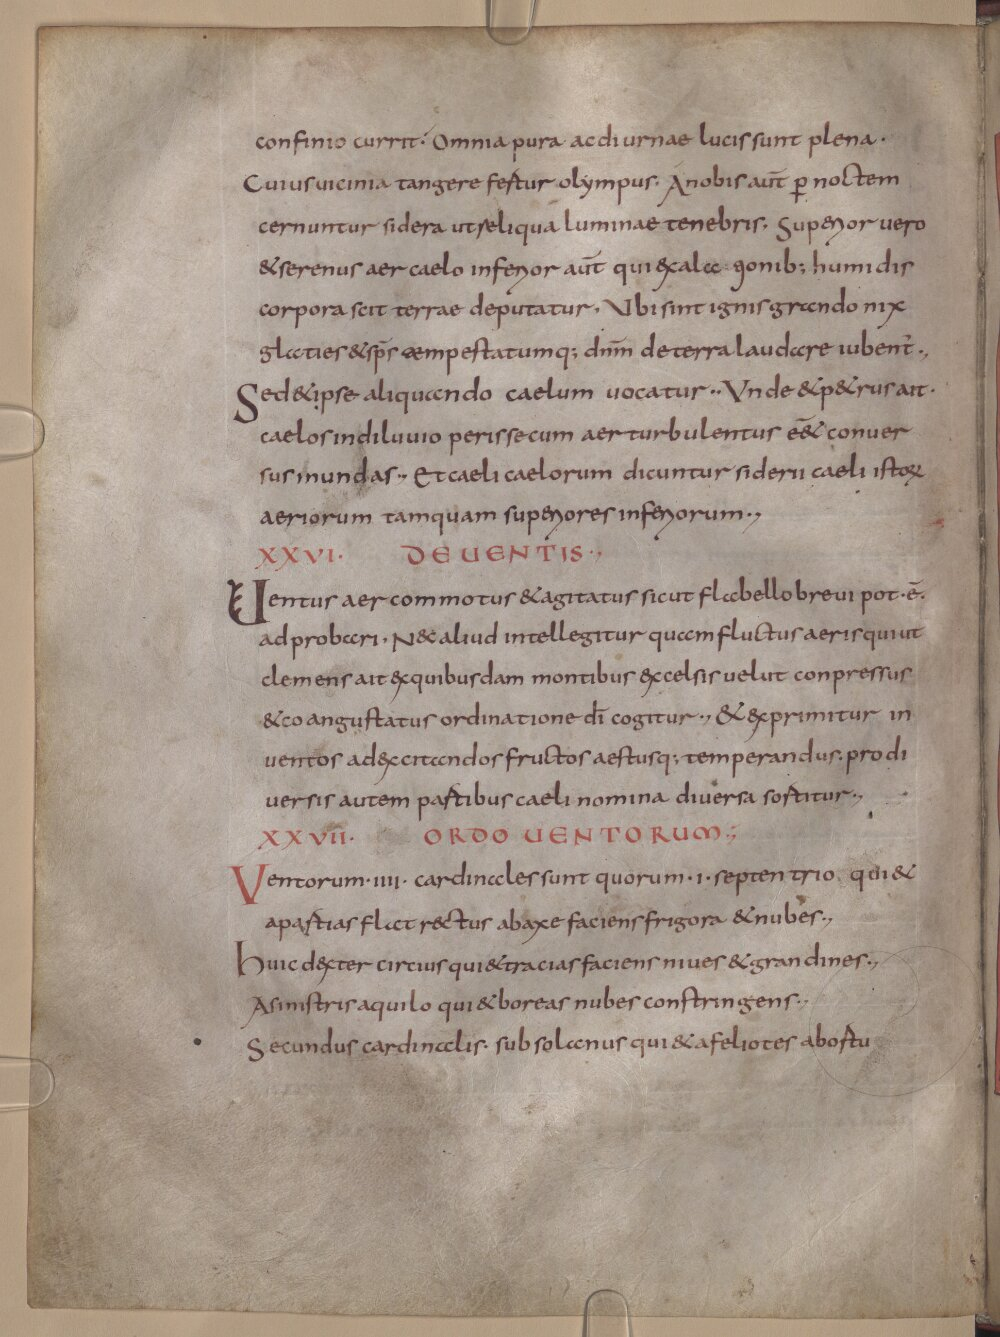 confinio currit. Omnia pura ac diurnae lucis sunt plena.
Cuius vicinia tangere fertur olympus. A nobis aut̄ ꝑ noctem
cernuntur sidera ut reliqua luminae tenebris. Superior vero
& serenus aer caelo inferior aut̄ qui &xalac ꝯonib; humidis
corpora seit terrae deputatur. Ubi sint ignis grando nix
glaties & sp̄s tempestatumq; dn̄m de terra laudare iubent̄.,
Sed & ipse aliquando caelum uocatur.. Unde & p&rus ait.
caelos in diluuio perisse cum aer turbulentus eē& conver
sus inundas., Et caeli caelorum dicuntur siderii caeli istoꝝ
aeriorum tamquam superiores inferiorum.,
XXVI. DE UENTIS.,
Uentus aer commotus & agitatus sicut flabello brevi pot·ē·
ad probari. N&c aliud intellegitur quam fluctus aeris qui ut
clemens ait &x quibusdam montibus &xcelsis uelut conpressus
& coangustatus ordinatione dī cogitur., & &xprimitur in
uentos ad &xcitandos fructos aestusq; temperandus. pro di
versis autem partibus caeli nomina diversa sortitur.,
XXVII. ORDO UENTORUM.,
Ventorum ·IIII· cardinales sunt quorum ·I· septentrio qui &
apartias flat r&ctus ab axe faciens frigora & nubes.,
huic d&xter circius qui & tracias faciens nives & grandines.,
A sinistris aquilo qui & boreas nubes constringens.,
Secundus cardinalis. subsolanus qui & afeliotes ab ortu